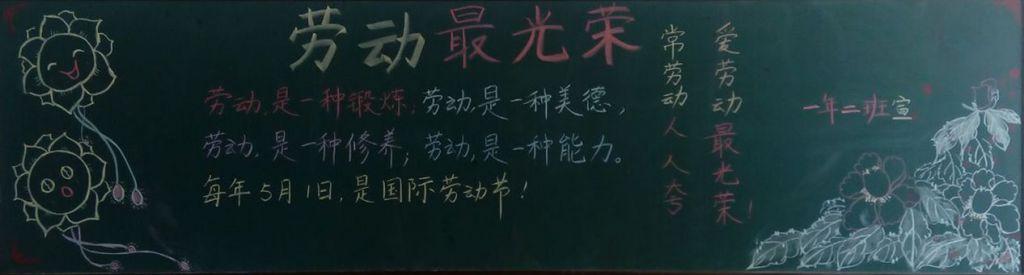 劳动最光荣
劳动,是一种锻炼;劳动,是一种美德,
劳动,是一种修养;劳动,是一种能力。
每年5月1日,是国际劳动节!
爱劳动最光荣!
常劳动人人夸
一年二班宣